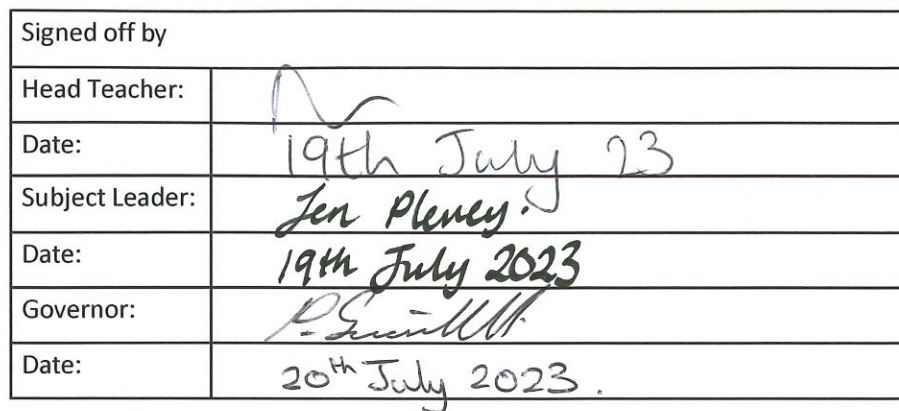 Signed off by
Head Teacher:
Date: 19th July 23
Subject Leader: Jen
Date: 19th July 2023
Governor: P.
Date: 20th July 2023.